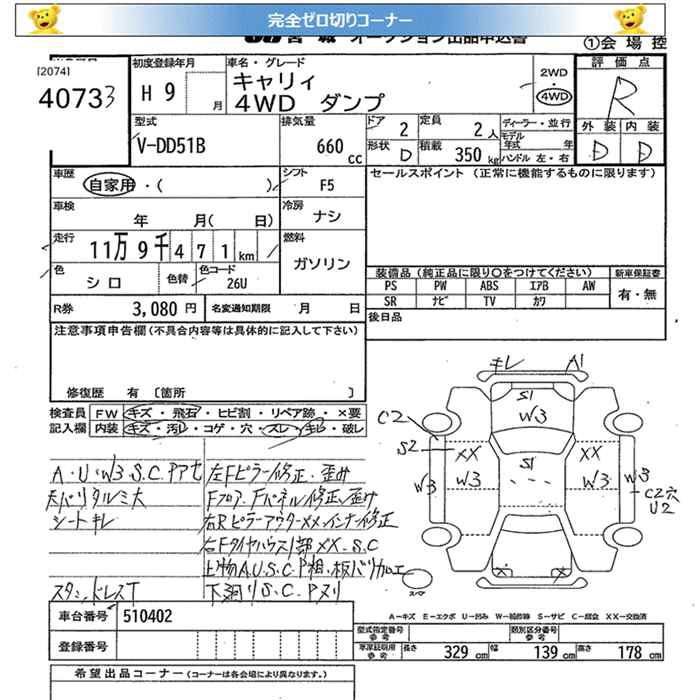 完全ゼロ切りコーナー
オークション出品申込書
①会場控
[2074]
40733
初度登録年月
H 9 月
車名・グレード
キャリィ
4WD ダンプ
2WD
4WD
評価点
R
外装 内装
D D
型式
V-DD51B
排気量
660 cc
ドア 2
定員 2 人
形状 D
積載 350 kg
ディーラー・並行
モデル年式 年
ハンドル 左・右
車歴
自家用・( )
シフト
F5
セールスポイント (正常に機能するものに限ります)
車検
年 月( 日)
冷房
ナシ
走行
11万9千471km
燃料
ガソリン
色
シロ
色替
色コード
26U
装備品(純正品に限り○をつけてください)
新車保証書
PS PW ABS エアB AW
SR ナビ TV カワ
有・無
R券 3,080 円
名変通知期限 月 日
後日品
注意事項申告欄(不具合内容等は具体的に記入して下さい)
修復歴 有 〔箇所 〕
検査員 FW キズ・飛石・ヒビ割・リペア跡・×要
記入欄 内装 キズ・汚レ・コゲ・穴・スレ・キレ・破レ
A・U・W3 S.C.Pアセ
シートキレ
スタッドレスT
左Fピラー修正・歪み
Fフロア、Fパネル修正、歪み
右RピラーアウターXX、インナー修正
右Fタイヤハウス1部XX、S.C
下廻りS.C.Pヌリ
キレ A1
S1
W3
C2
S2
XX XX
S1
W3 W3 W3 W3
C2穴
U2
スペア
A－キズ E－エクボ U－凹み W－補修跡 S－サビ C－腐食 XX－交換済
車台番号 510402
登録番号
型式指定番号 参考
類別区分番号 参考
車庫証明用 参考 長さ 329 cm 幅 139 cm 高さ 178 cm
希望出品コーナー(コーナーは各会場により異なります。)